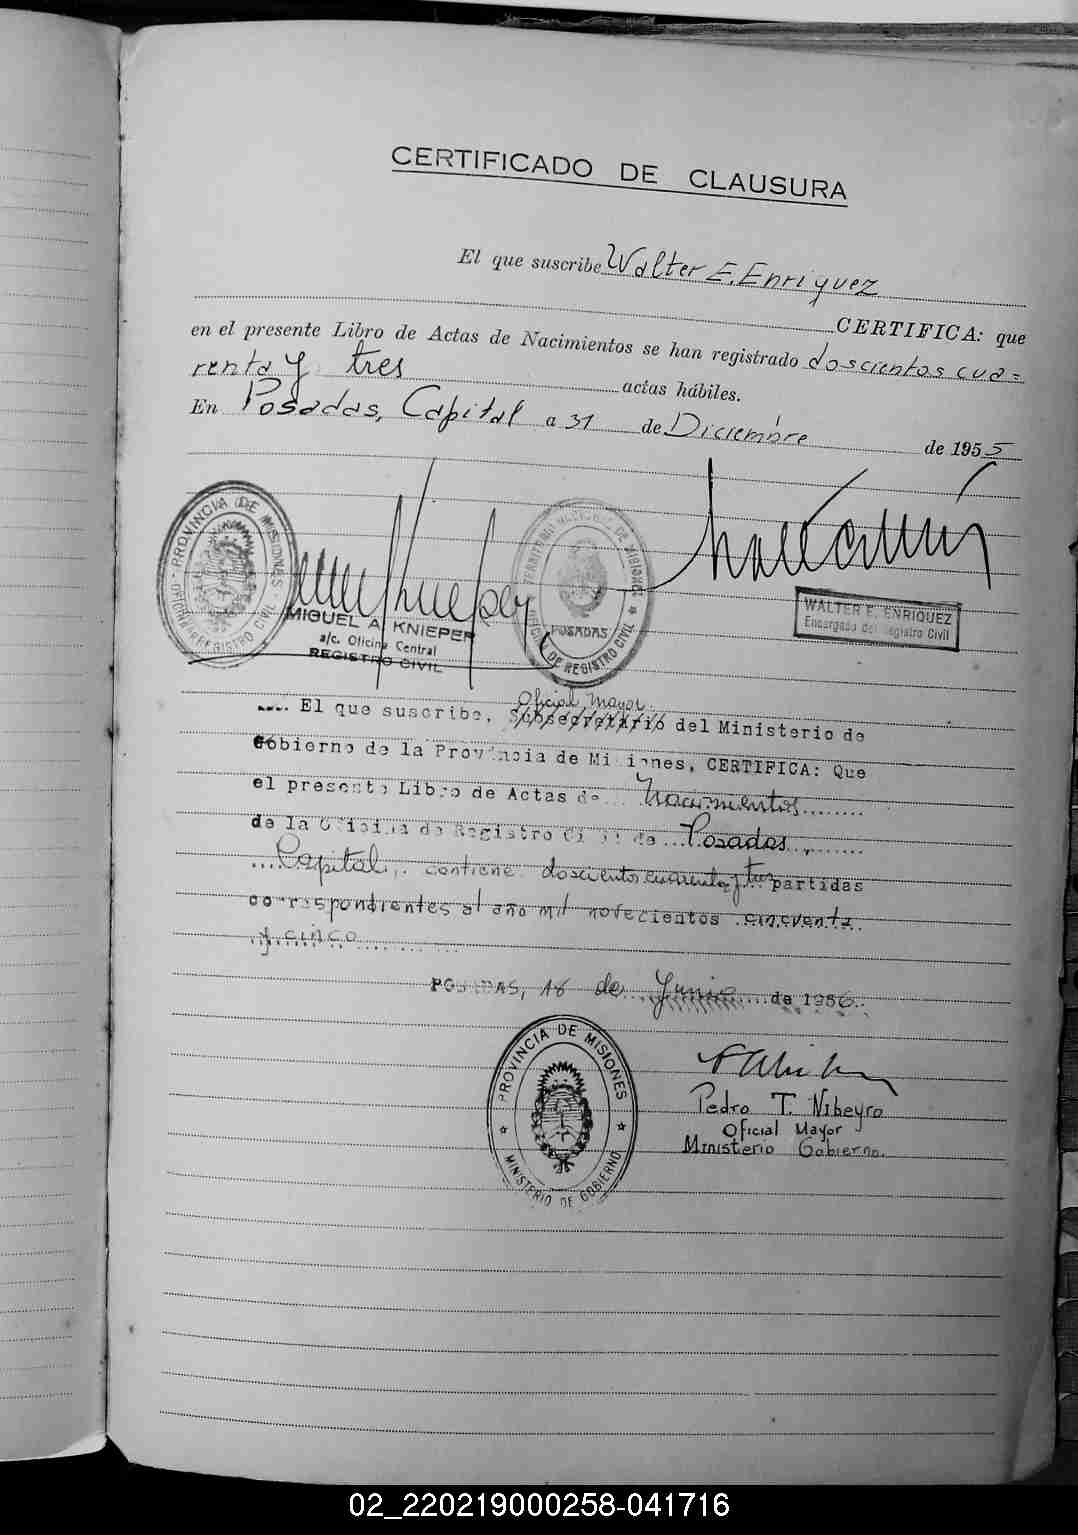 CERTIFICADO DE CLAUSURA
El que suscribe Walter E. Enriquez
CERTIFICA: que
en el presente Libro de Actas de Nacimientos se han registrado doscientos cua=
renta y tres actas hábiles.
En Posadas, Capital a 31 de Diciembre de 1955
PROVINCIA DE MISIONES
OFICINA REGISTRO CIVIL
MIGUEL A. KNIEPER
a/c. Oficina Central
REGISTRO CIVIL
TERRITORIO NACIONAL DE MISIONES
POSADAS
OFICINA DE REGISTRO CIVIL
WALTER E. ENRIQUEZ
Encargado del Registro Civil
Oficial Mayor
El que suscribe, Subsecretario del Ministerio de
Gobierno de la Provincia de Misiones, CERTIFICA: Que
el presente Libro de Actas de Nacimientos
de la Oficina de Registro Civil de Posadas
Capital, contiene doscientos cuarenta y tres partidas
correspondientes al año mil novecientos cincuenta
y cinco
POSADAS, 18 de Junio de 1956
PROVINCIA DE MISIONES
MINISTERIO DE GOBIERNO
Pedro T. Nibeyro
Oficial Mayor
Ministerio Gobierno.
02_220219000258-041716